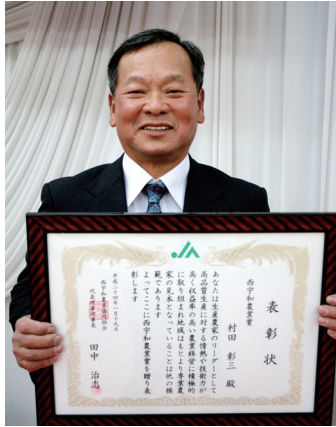 JA
表彰状
西宇和農業賞
村田 彰三 殿
あなたは生産農家のリーダーとして
高品質生産に対する情熱や技術力が
高く収益率の高い農業経営に積極的
に取り組まれ地域はもとより専業農
家の見本となっていることは他の模
範であります
よってここに西宇和農業賞を贈り表
彰します
平成二十四年一月十九日
西宇和農業協同組合
代表理事理事長
田中 治志